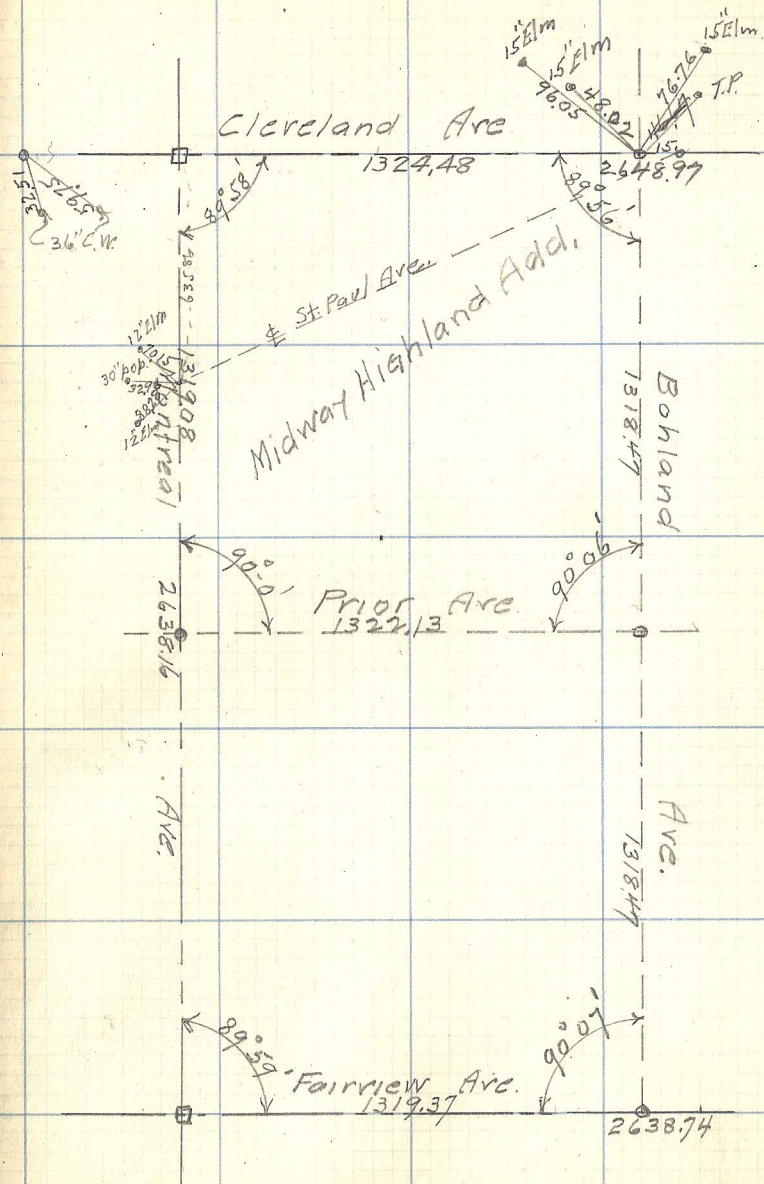 15" Elm
15" Elm
15" Elm
96.05
48.02
76.76
T.P.
Cleveland Ave
1324.48
2648.97
32.51
59.75
36" C.W.
89° 58'
89° 56'
635.86
℄ St. Paul Ave.
Midway Highland Add.
12" Elm
70.15
30" pop.
12" Elm
1319.08
Montreal
Bohland
1318.47
90° 0'
90° 06'
Prior Ave
1322.13
2638.16
Ave.
Ave.
1318.47
89° 59'
90° 07'
Fairview Ave.
1319.37
2638.74